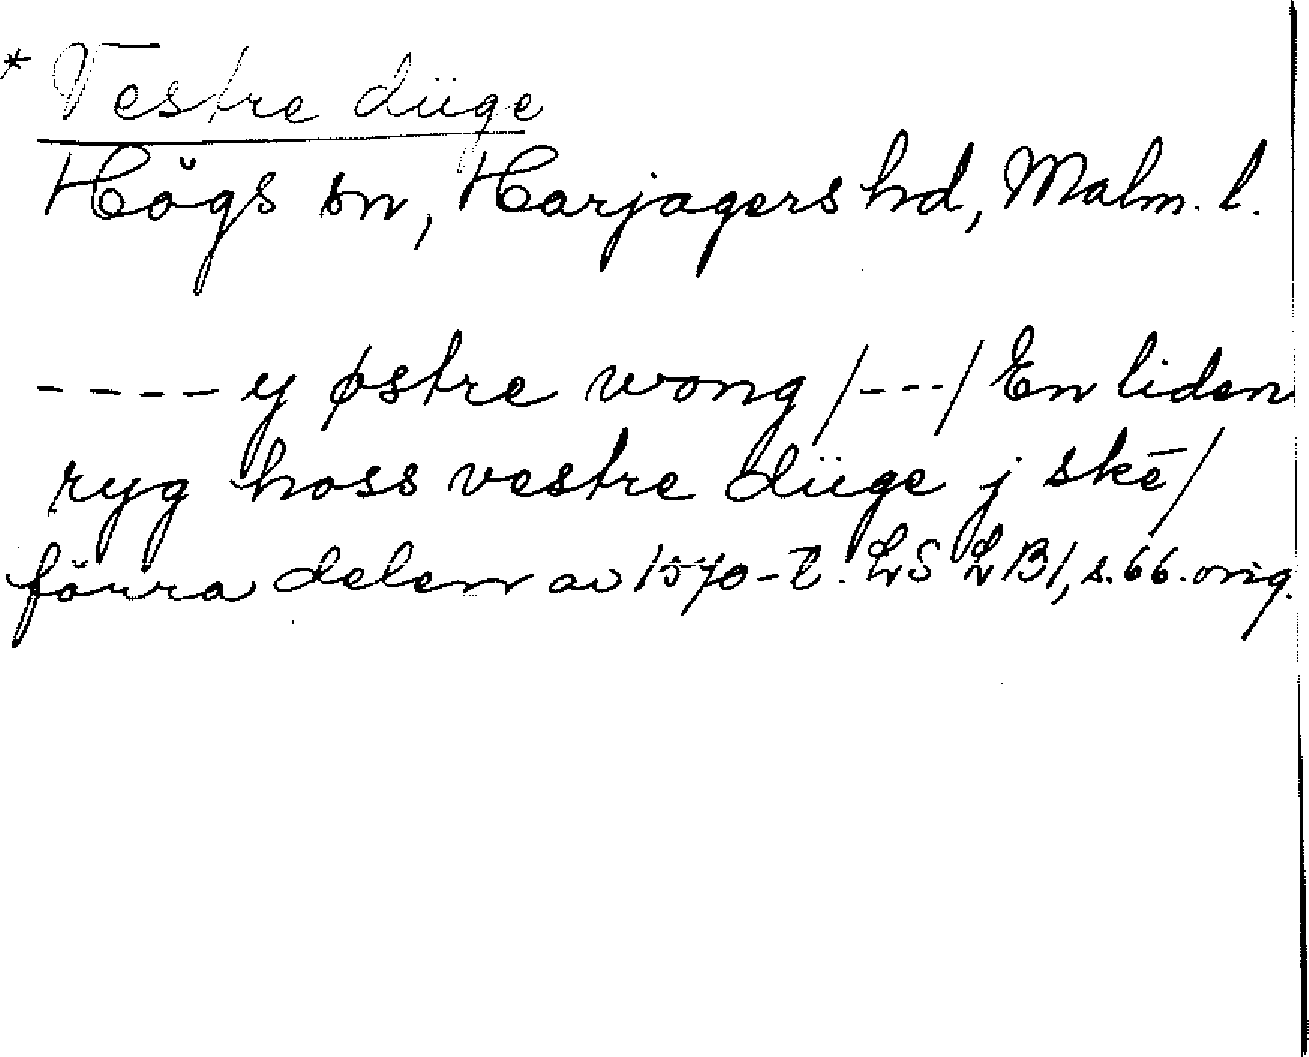 * Vestre düge
Högs sn, Harjagers hd, Malm. l.
---- y østre wong /---/ En liden
ryg hoss vestre düge j skē/
förra delen av 1570-t. LS LB1, s. 66. orig.